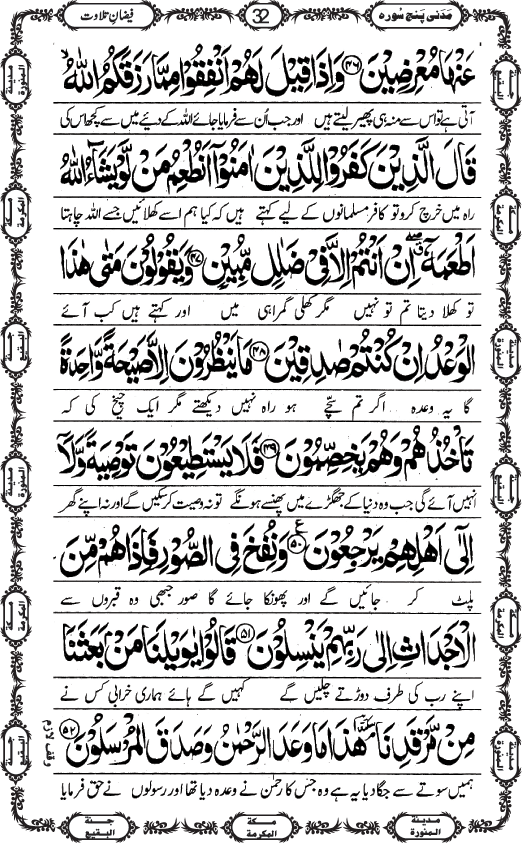 مَدَنی پنج سُورہ
32
فیضانِ تلاوت
عَنْهَا مُعْرِضِیْنَ ﴿۴۶﴾ وَ اِذَا قِیْلَ لَهُمْ اَنْفِقُوْا مِمَّا رَزَقَكُمُ اللّٰهُ ۙ
آتی ہے تو اس سے منہ ہی پھیر لیتے ہیں اور جب اُن سے فرمایا جائے اللہ کے دئیے میں سے کچھ اس کی
قَالَ الَّذِیْنَ كَفَرُوْا لِلَّذِیْنَ اٰمَنُوْۤا اَنُطْعِمُ مَنْ لَّوْ یَشَآءُ اللّٰهُ
راہ میں خرچ کرو تو کافر مسلمانوں کے لیے کہتے ہیں کہ کیا ہم اسے کھلائیں جسے اللہ چاہتا
اَطْعَمَهٗۤ ۖۗ اِنْ اَنْتُمْ اِلَّا فِیْ ضَلٰلٍ مُّبِیْنٍ ﴿۴۷﴾ وَ یَقُوْلُوْنَ مَتٰى هٰذَا
تو کھلا دیتا تم تو نہیں مگر کھلی گمراہی میں اور کہتے ہیں کب آئے
الْوَعْدُ اِنْ كُنْتُمْ صٰدِقِیْنَ ﴿۴۸﴾ مَا یَنْظُرُوْنَ اِلَّا صَیْحَةً وَّاحِدَةً
گا یہ وعدہ اگر تم سچے ہو راہ نہیں دیکھتے مگر ایک چیخ کی کہ
تَاْخُذُهُمْ وَ هُمْ یَخِصِّمُوْنَ ﴿۴۹﴾ فَلَا یَسْتَطِیْعُوْنَ تَوْصِیَةً وَّ لَاۤ
انہیں آئے گی جب وہ دنیا کے جھگڑے میں پھنسے ہونگے تو نہ وصیت کر سکیں گے اور نہ اپنے گھر
اِلٰۤى اَهْلِهِمْ یَرْجِعُوْنَ ﴿۵۰﴾ ع وَ نُفِخَ فِی الصُّوْرِ فَاِذَا هُمْ مِّنَ
پلٹ کر جائیں گے اور پھونکا جائے گا صور جبھی وہ قبروں سے
الْاَجْدَاثِ اِلٰى رَبِّهِمْ یَنْسِلُوْنَ ﴿۵۱﴾ قَالُوْا یٰوَیْلَنَا مَنْۢ بَعَثَنَا
اپنے رب کی طرف دوڑتے چلیں گے کہیں گے ہائے ہماری خرابی کس نے
مِنْ مَّرْقَدِنَا ۘ سكتة هٰذَا مَا وَعَدَ الرَّحْمٰنُ وَ صَدَقَ الْمُرْسَلُوْنَ ﴿۵۲﴾
وقف لازم
ہمیں سوتے سے جگا دیا یہ ہے وہ جس کا رحمٰن نے وعدہ دیا تھا اور رسولوں نے حق فرمایا
جنۃ البقیع
مکۃ المکرمۃ
مدینۃ المنورۃ
جنۃ البقیع
مکۃ المکرمۃ
مدینۃ المنورۃ
مدینۃ المنورۃ
مکۃ المکرمۃ
جنۃ البقیع
مدینۃ المنورۃ
مکۃ المکرمۃ
جنۃ البقیع
مدینۃ المنورۃ
مکۃ المکرمۃ
جنۃ البقیع